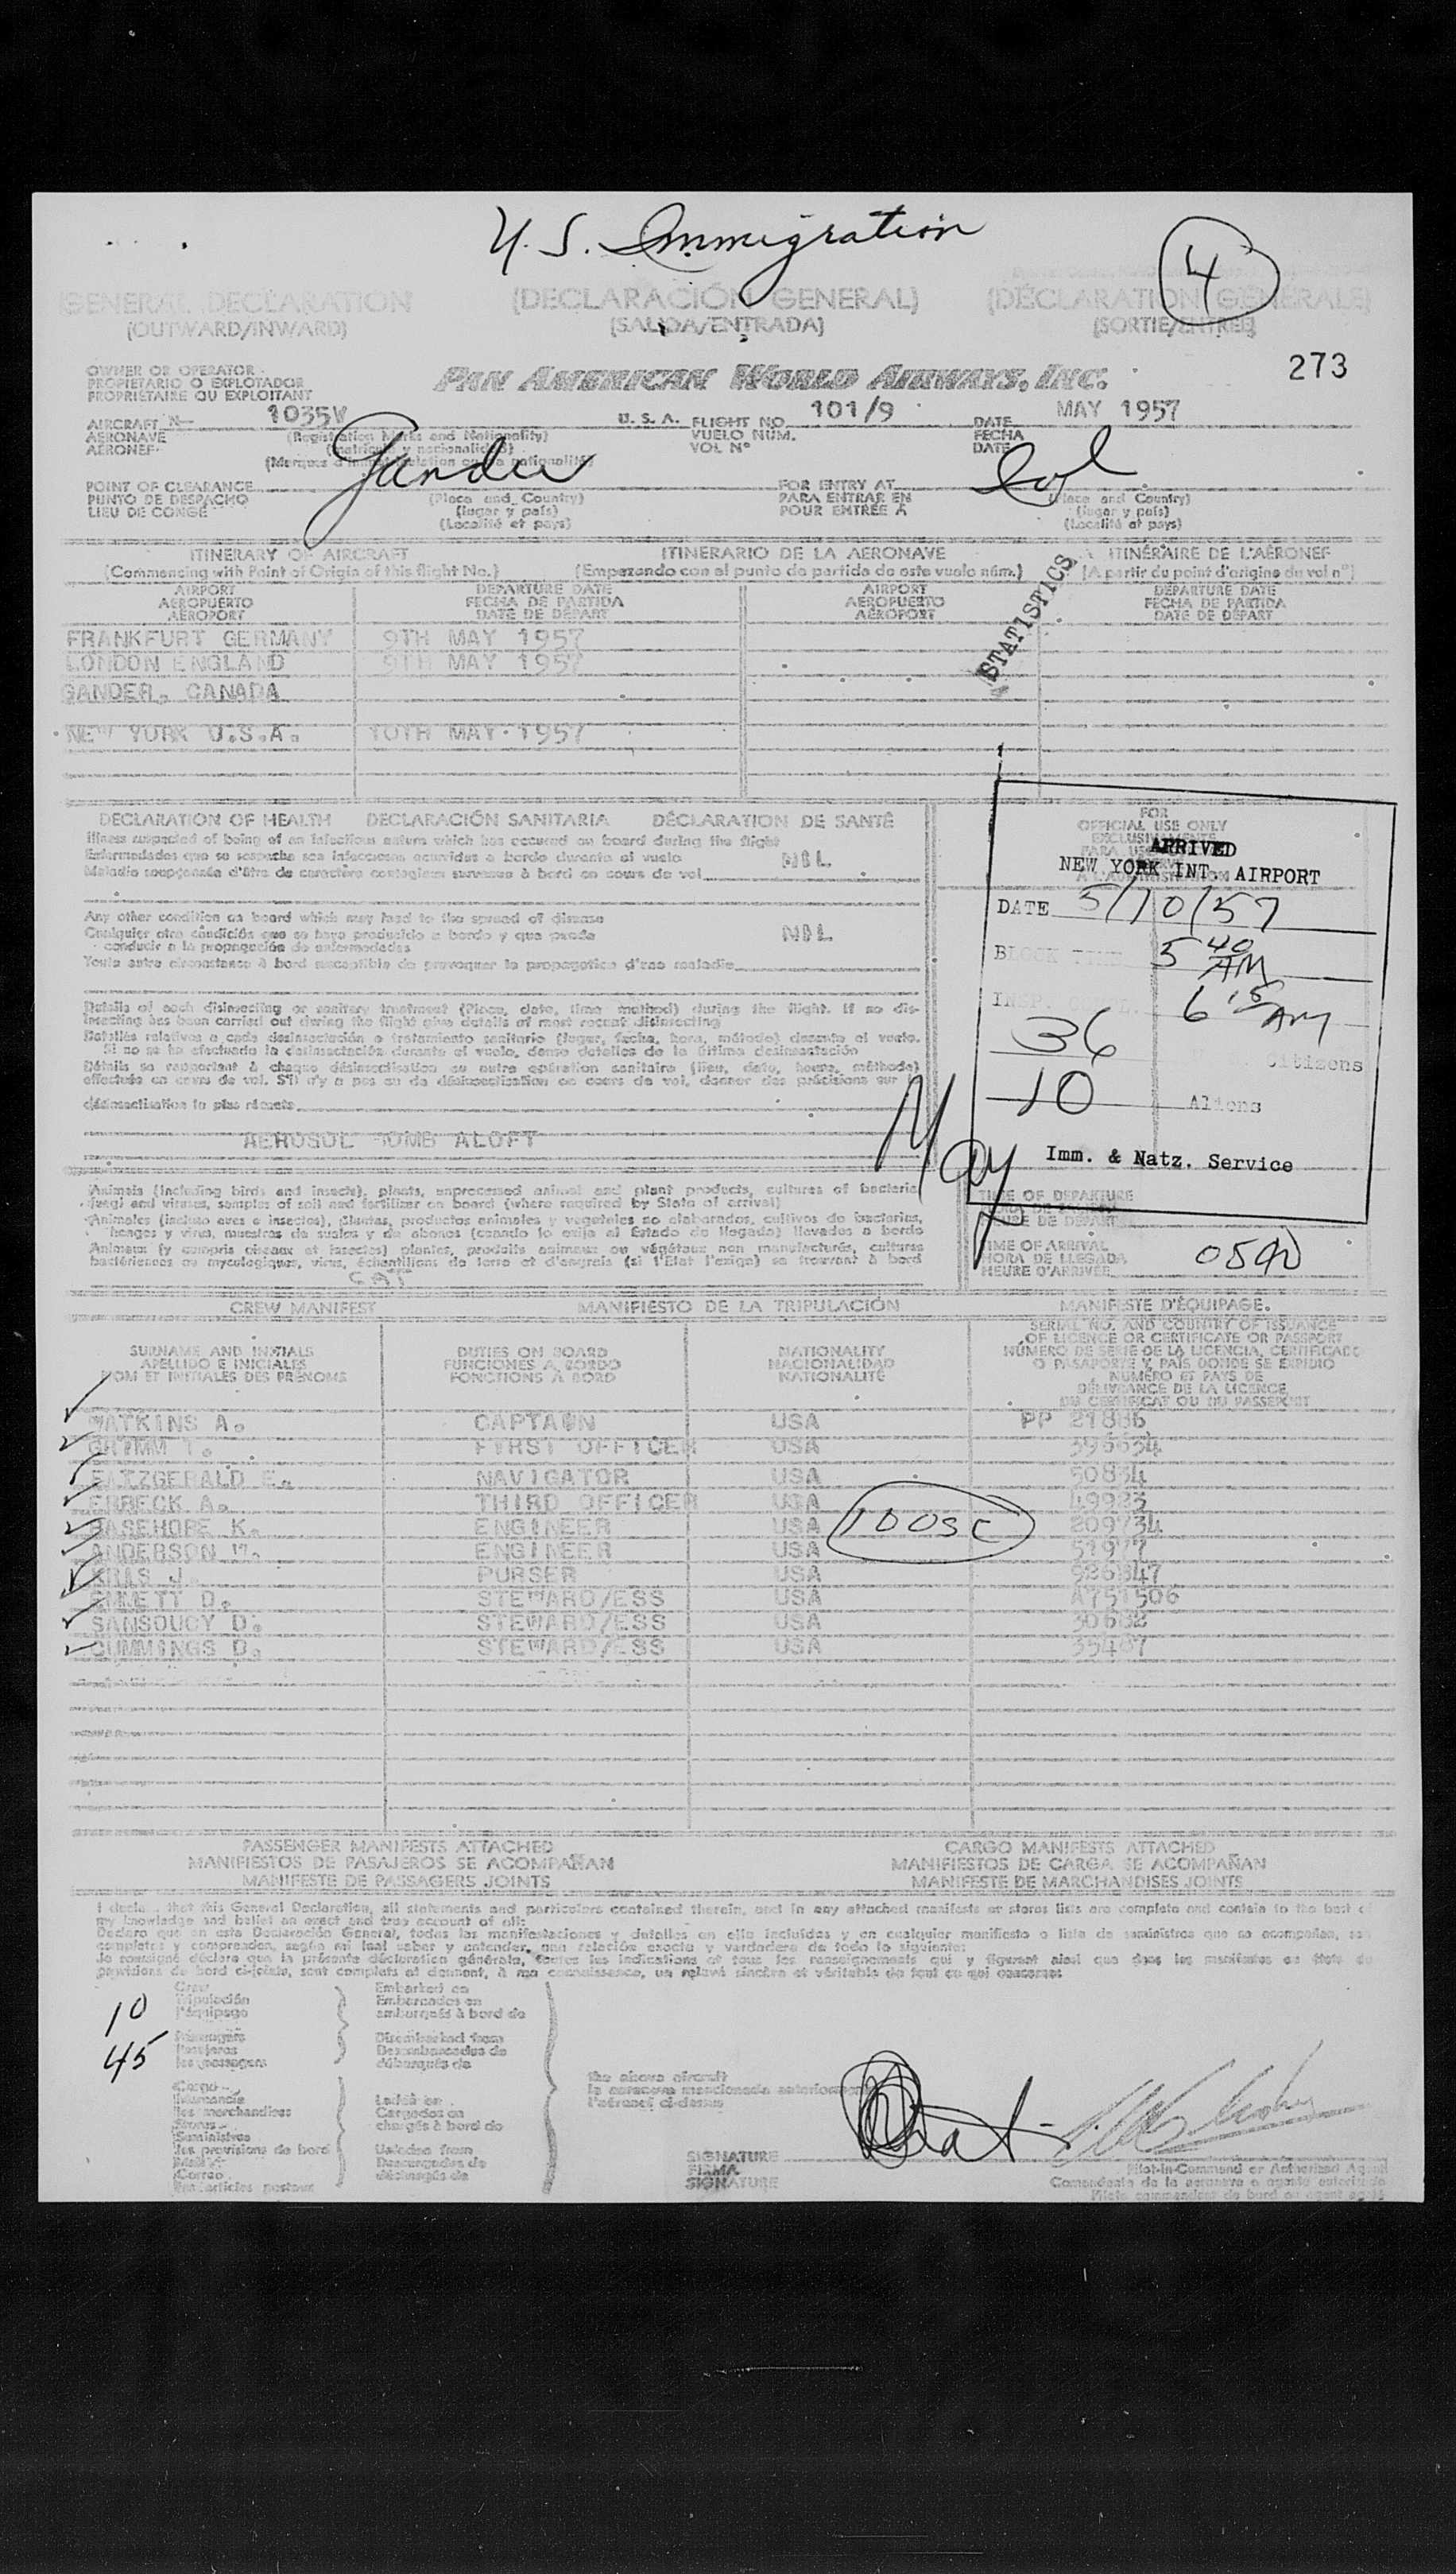 U.S. Immigration
4
GENERAL DECLARATION (DECLARACIÓN GENERAL) (DÉCLARATION GÉNÉRALE)
(OUTWARD/INWARD) (SALIDA/ENTRADA) (SORTIE/ENTRÉE)
273
OWNER OR OPERATOR
PROPIETARIO O EXPLOTADOR
PROPRIÉTAIRE OU EXPLOITANT
PAN AMERICAN WORLD AIRWAYS, INC.
AIRCRAFT N— 1035V U.S.A. FLIGHT NO. 101/9 DATE MAY 1957
AERONAVE (Registration Marks and Nationality) VUELO NÚM. FECHA
AÉRONEF (matrícula y nacionalidad) VOL Nº DATE
POINT OF CLEARANCE Gander FOR ENTRY AT
PUNTO DE DESPACHO (Place and Country) PARA ENTRAR EN (Place and Country)
LIEU DE CONGÉ (lugar y país) POUR ENTRÉE À (lugar y país)
(Localité et pays) (Localité et pays)
ITINERARY OF AIRCRAFT ITINERARIO DE LA AERONAVE ITINÉRAIRE DE L'AÉRONEF
(Commencing with Point of Origin of this flight No.) (Empezando con el punto de partida de este vuelo núm.) (A partir du point d'origine du vol nº)
AIRPORT DEPARTURE DATE AIRPORT DEPARTURE DATE
AEROPUERTO FECHA DE PARTIDA AEROPUERTO FECHA DE PARTIDA
AÉROPORT DATE DE DÉPART AÉROPORT DATE DE DÉPART
STATISTICS
FRANKFURT GERMANY 9TH MAY 1957
LONDON ENGLAND 9TH MAY 1957
GANDER, CANADA
NEW YORK U.S.A. 10TH MAY 1957
DECLARATION OF HEALTH DECLARACIÓN SANITARIA DÉCLARATION DE SANTÉ
Illness suspected of being of an infectious nature which has occured on board during the flight
Enfermedades que se sospecha sea infecciosas ocurridas a bordo durante el vuelo NIL
Maladie soupçonnée d'être de caractère contagieux survenue à bord en cours de vol
Any other condition on board which may lead to the spread of disease
Cualquier otra condición que se haya producido a bordo y que pueda NIL
conducir a la propagación de enfermedades
Toute autre circonstance à bord susceptible de provoquer la propagation d'une maladie
Details of each disinsecting or sanitary treatment (Place, date, time method) during the flight. If no dis-
insecting has been carried out during the flight give details of most recent disinsecting
Detalles relativos a cada desinsectación o tratamiento sanitario (lugar, fecha, hora, método) durante el vuelo.
Si no se ha efectuado la desinsectación durante el vuelo, dense detalles de la última desinsectación
Détails se rapportant à chaque désinsectisation ou autre opération sanitaire (lieu, date, heure, méthode)
effectuée en cours de vol. S'il n'y a pas eu de désinsectisation en cours de vol, donner des précisions sur la
désinsectisation la plus récente
AEROSOL BOMB ALOFT
FOR
OFFICIAL USE ONLY
ARRIVED
NEW YORK INT. AIRPORT
DATE 5/10/57
BLOCK TIME 5 40 AM
INSP. 6 15 AM
36 Citizens
10 Aliens
Imm. & Natz. Service
May
Animals (including birds and insects), plants, unprocessed animal and plant products, cultures of bacteria
fungi and viruses, samples of soil and fertilizer on board (where required by State of arrival)
Animales (incluso aves e insectos), plantas, productos animales y vegetales no elaborados, cultivos de bacterias,
hongos y virus, muestras de suelos y de abonos (cuando lo exija el Estado de llegada) llevados a bordo
Animaux (y compris oiseaux et insectes) plantes, produits animaux ou végétaux non manufacturés, cultures
bactériennes ou mycologiques, virus, échantillons de terre et d'engrais (si l'État l'exige) se trouvant à bord
CAT
TIME OF DEPARTURE
TIME OF ARRIVAL
HORA DE LLEGADA 0540
HEURE D'ARRIVÉE
CREW MANIFEST MANIFIESTO DE LA TRIPULACIÓN MANIFESTE D'ÉQUIPAGE.
SURNAME AND INITIALS DUTIES ON BOARD NATIONALITY SERIAL NO. AND COUNTRY OF ISSUANCE
APELLIDO E INICIALES FUNCIONES A BORDO NACIONALIDAD OF LICENCE OR CERTIFICATE OR PASSPORT
NOM ET INITIALES DES PRÉNOMS FONCTIONS À BORD NATIONALITÉ NÚMERO DE SERIE DE LA LICENCIA, CERTIFICADO
O PASAPORTE Y PAÍS DONDE SE EXPIDIO
NUMÉRO ET PAYS DE
DÉLIVRANCE DE LA LICENCE,
DU CERTIFICAT OU DU PASSEPORT
WATKINS A. CAPTAIN USA PP 21886
GRIMM T. FIRST OFFICER USA
FITZGERALD E. NAVIGATOR USA 50834
ERBECK A. THIRD OFFICER USA 49923
BASEHORE K. ENGINEER USA 209734
ANDERSON ENGINEER USA 51977
J. PURSER USA
D. STEWARD/ESS USA A751506
SANSOUCY D. STEWARD/ESS USA 30682
CUMMINGS D. STEWARD/ESS USA 35487
PASSENGER MANIFESTS ATTACHED CARGO MANIFESTS ATTACHED
MANIFIESTOS DE PASAJEROS SE ACOMPAÑAN MANIFIESTOS DE CARGA SE ACOMPAÑAN
MANIFESTE DE PASSAGERS JOINTS MANIFESTE DE MARCHANDISES JOINTS
I declare that this General Declaration, all statements and particulars contained therein, and in any attached manifests or stores lists are complete and contain to the best of
my knowledge and belief an exact and true account of all:
Declaro que en esta Declaración General, todas las manifestaciones y detalles en ella incluidas y en cualquier manifiesto o lista de suministros que se acompañan, son
completas y comprenden, según mi leal saber y entender, una relación exacta y verdadera de todo lo siguiente:
Je soussigné déclare que la présente déclaration générale, toutes les indications et tous les renseignements qui y figurent ainsi que dans les manifestes ou états de
provisions de bord ci-joints, sont complets et donnent, à ma connaissance, un relevé sincère et véritable de tout ce qui concerne:
10 Crew Embarked on
Tripulación Embarcados en
l'équipage embarqués à bord de
45 Passengers Disembarked from
Pasajeros Desembarcados de
les passagers débarqués de
Cargo the above aircraft
Mercancía Laded on la aeronave mencionada anteriormente
les marchandises Cargados en l'aéronef ci-dessus
Stores chargés à bord de
Suministros
les provisions de bord Unladen from
Mail Descargados de
Correo déchargés de
les articles postaux
SIGNATURE
FIRMA Pilot-in-Command or Authorized Agent
SIGNATURE Comandante de la aeronave o agente autorizado